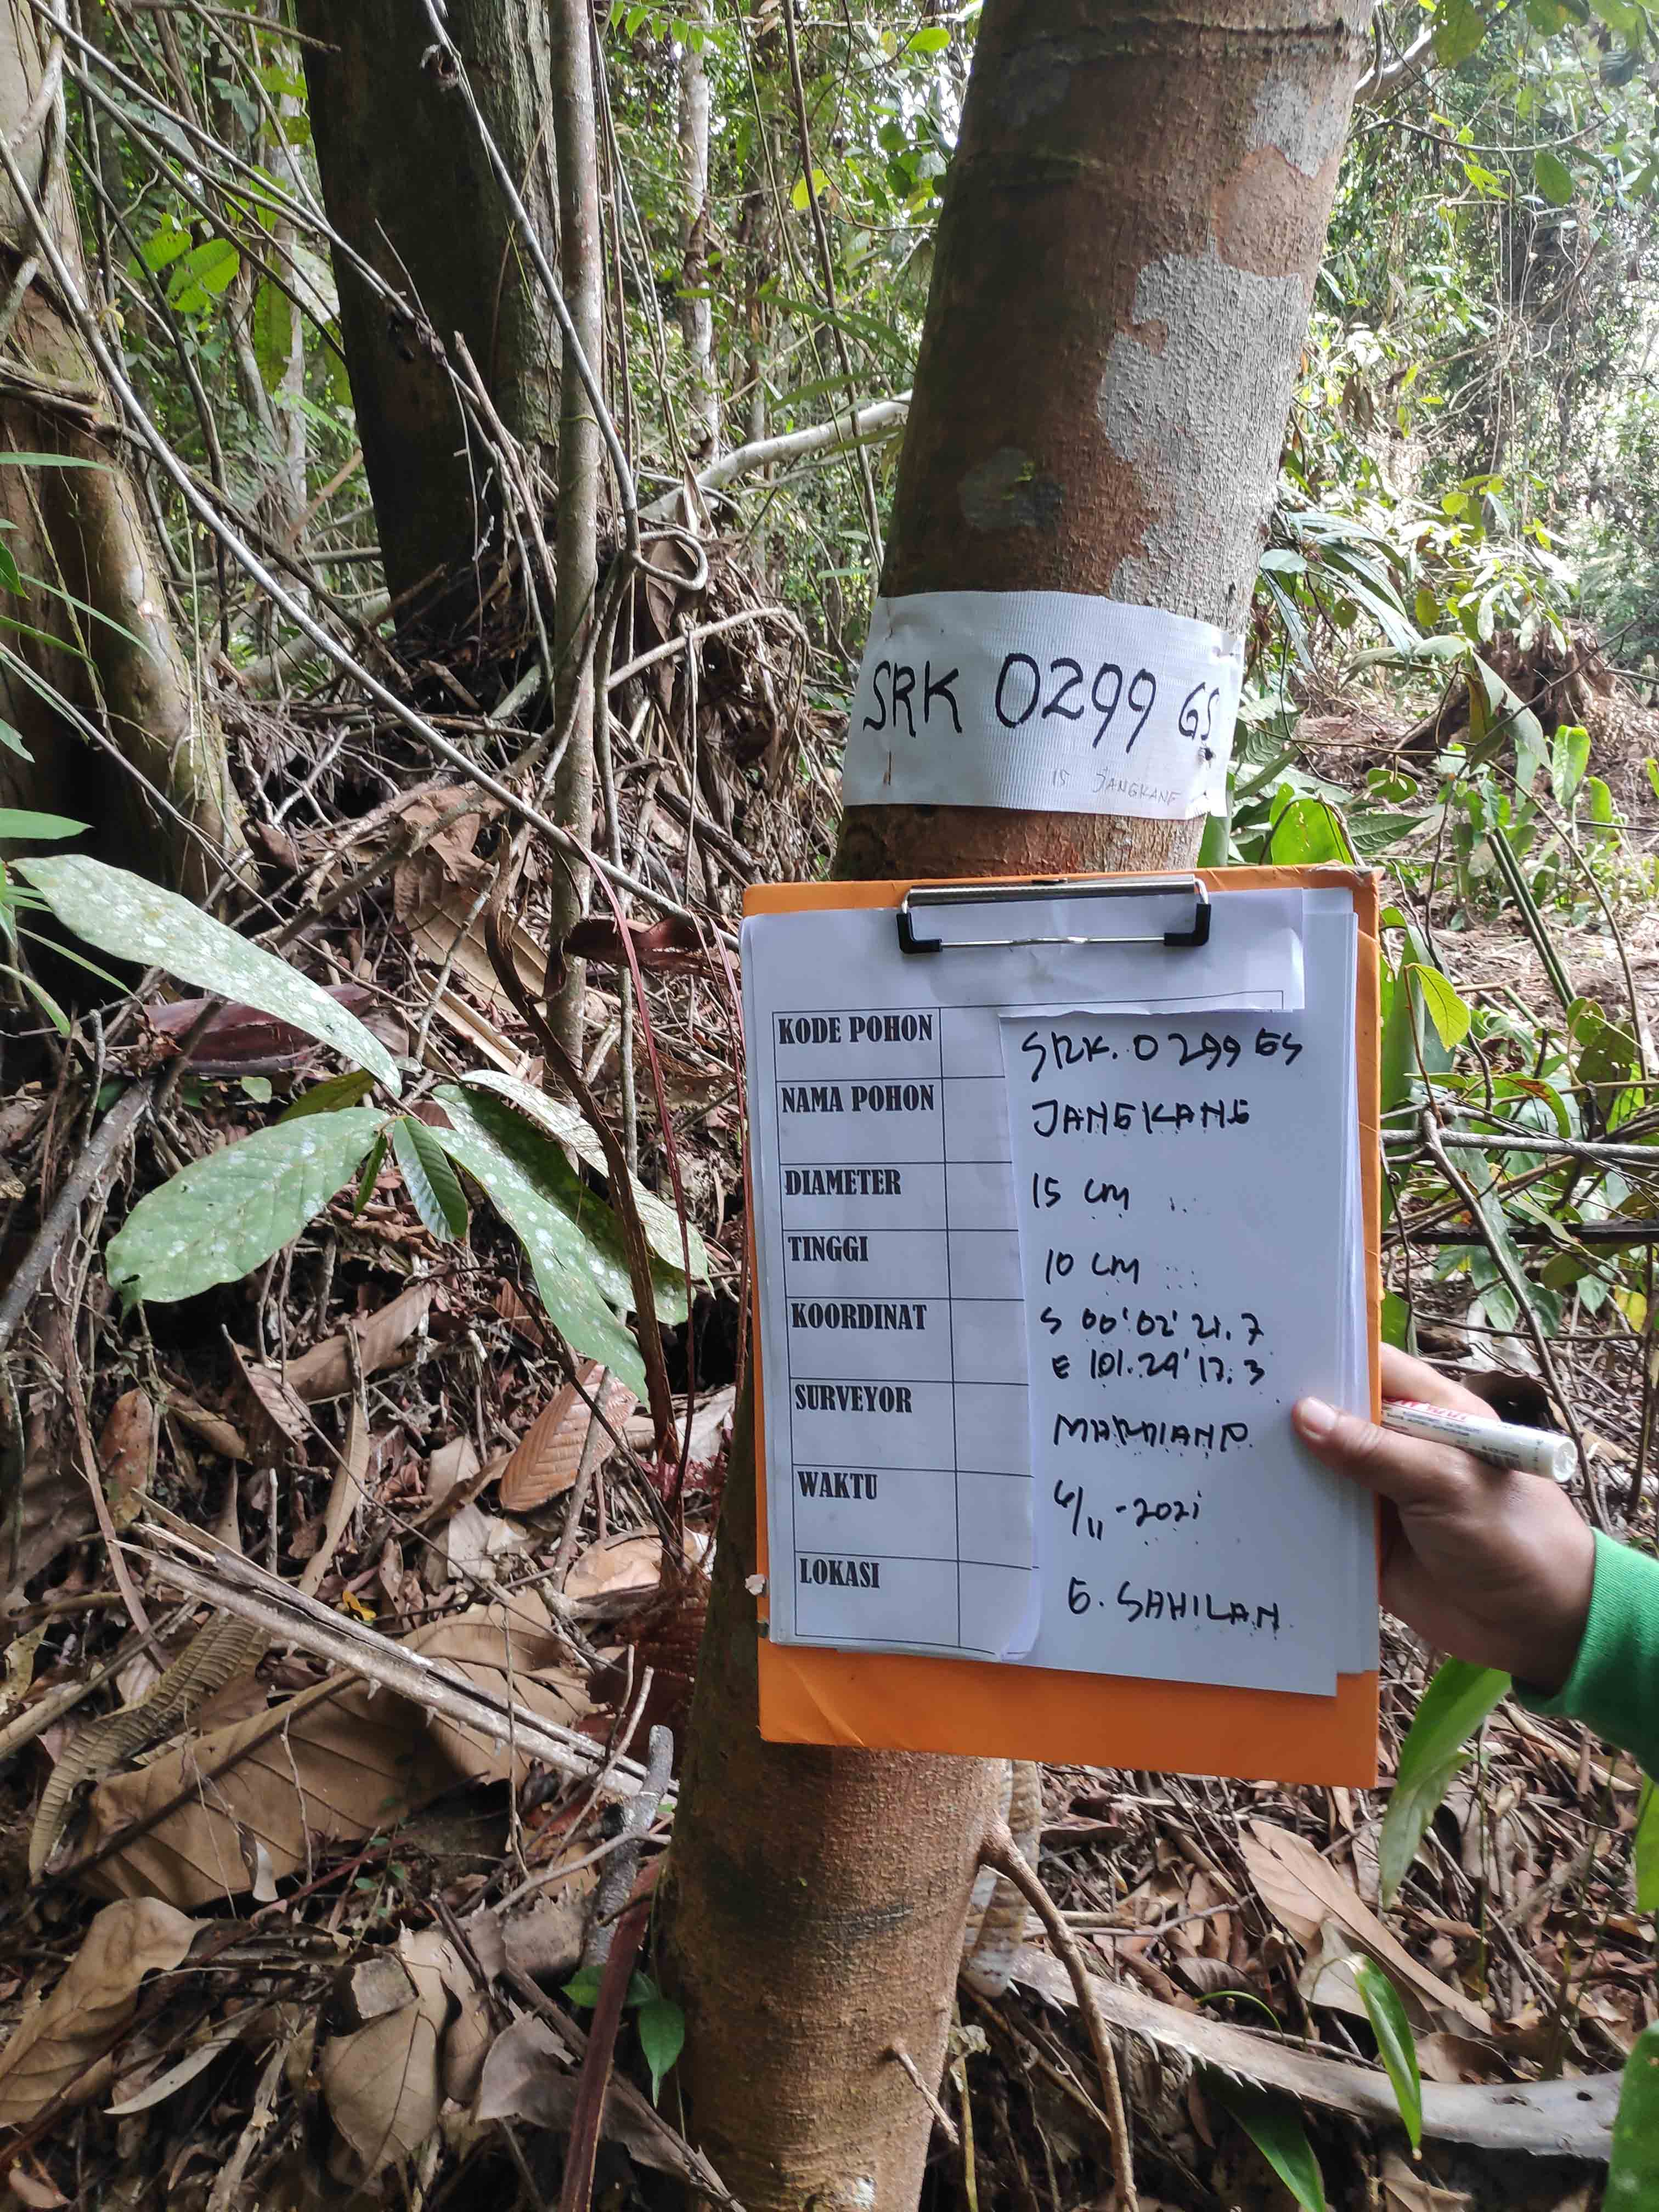 SRK 0299 GS
15 JANGKANG
KODE POHON SRK. 0299 GS
NAMA POHON JANGKANG
DIAMETER 15 cm
TINGGI 10 cm
KOORDINAT S 00'.02' 21.7
E 101.29' 17.3
SURVEYOR
WAKTU 6/11-2021
LOKASI G. SAHILAN